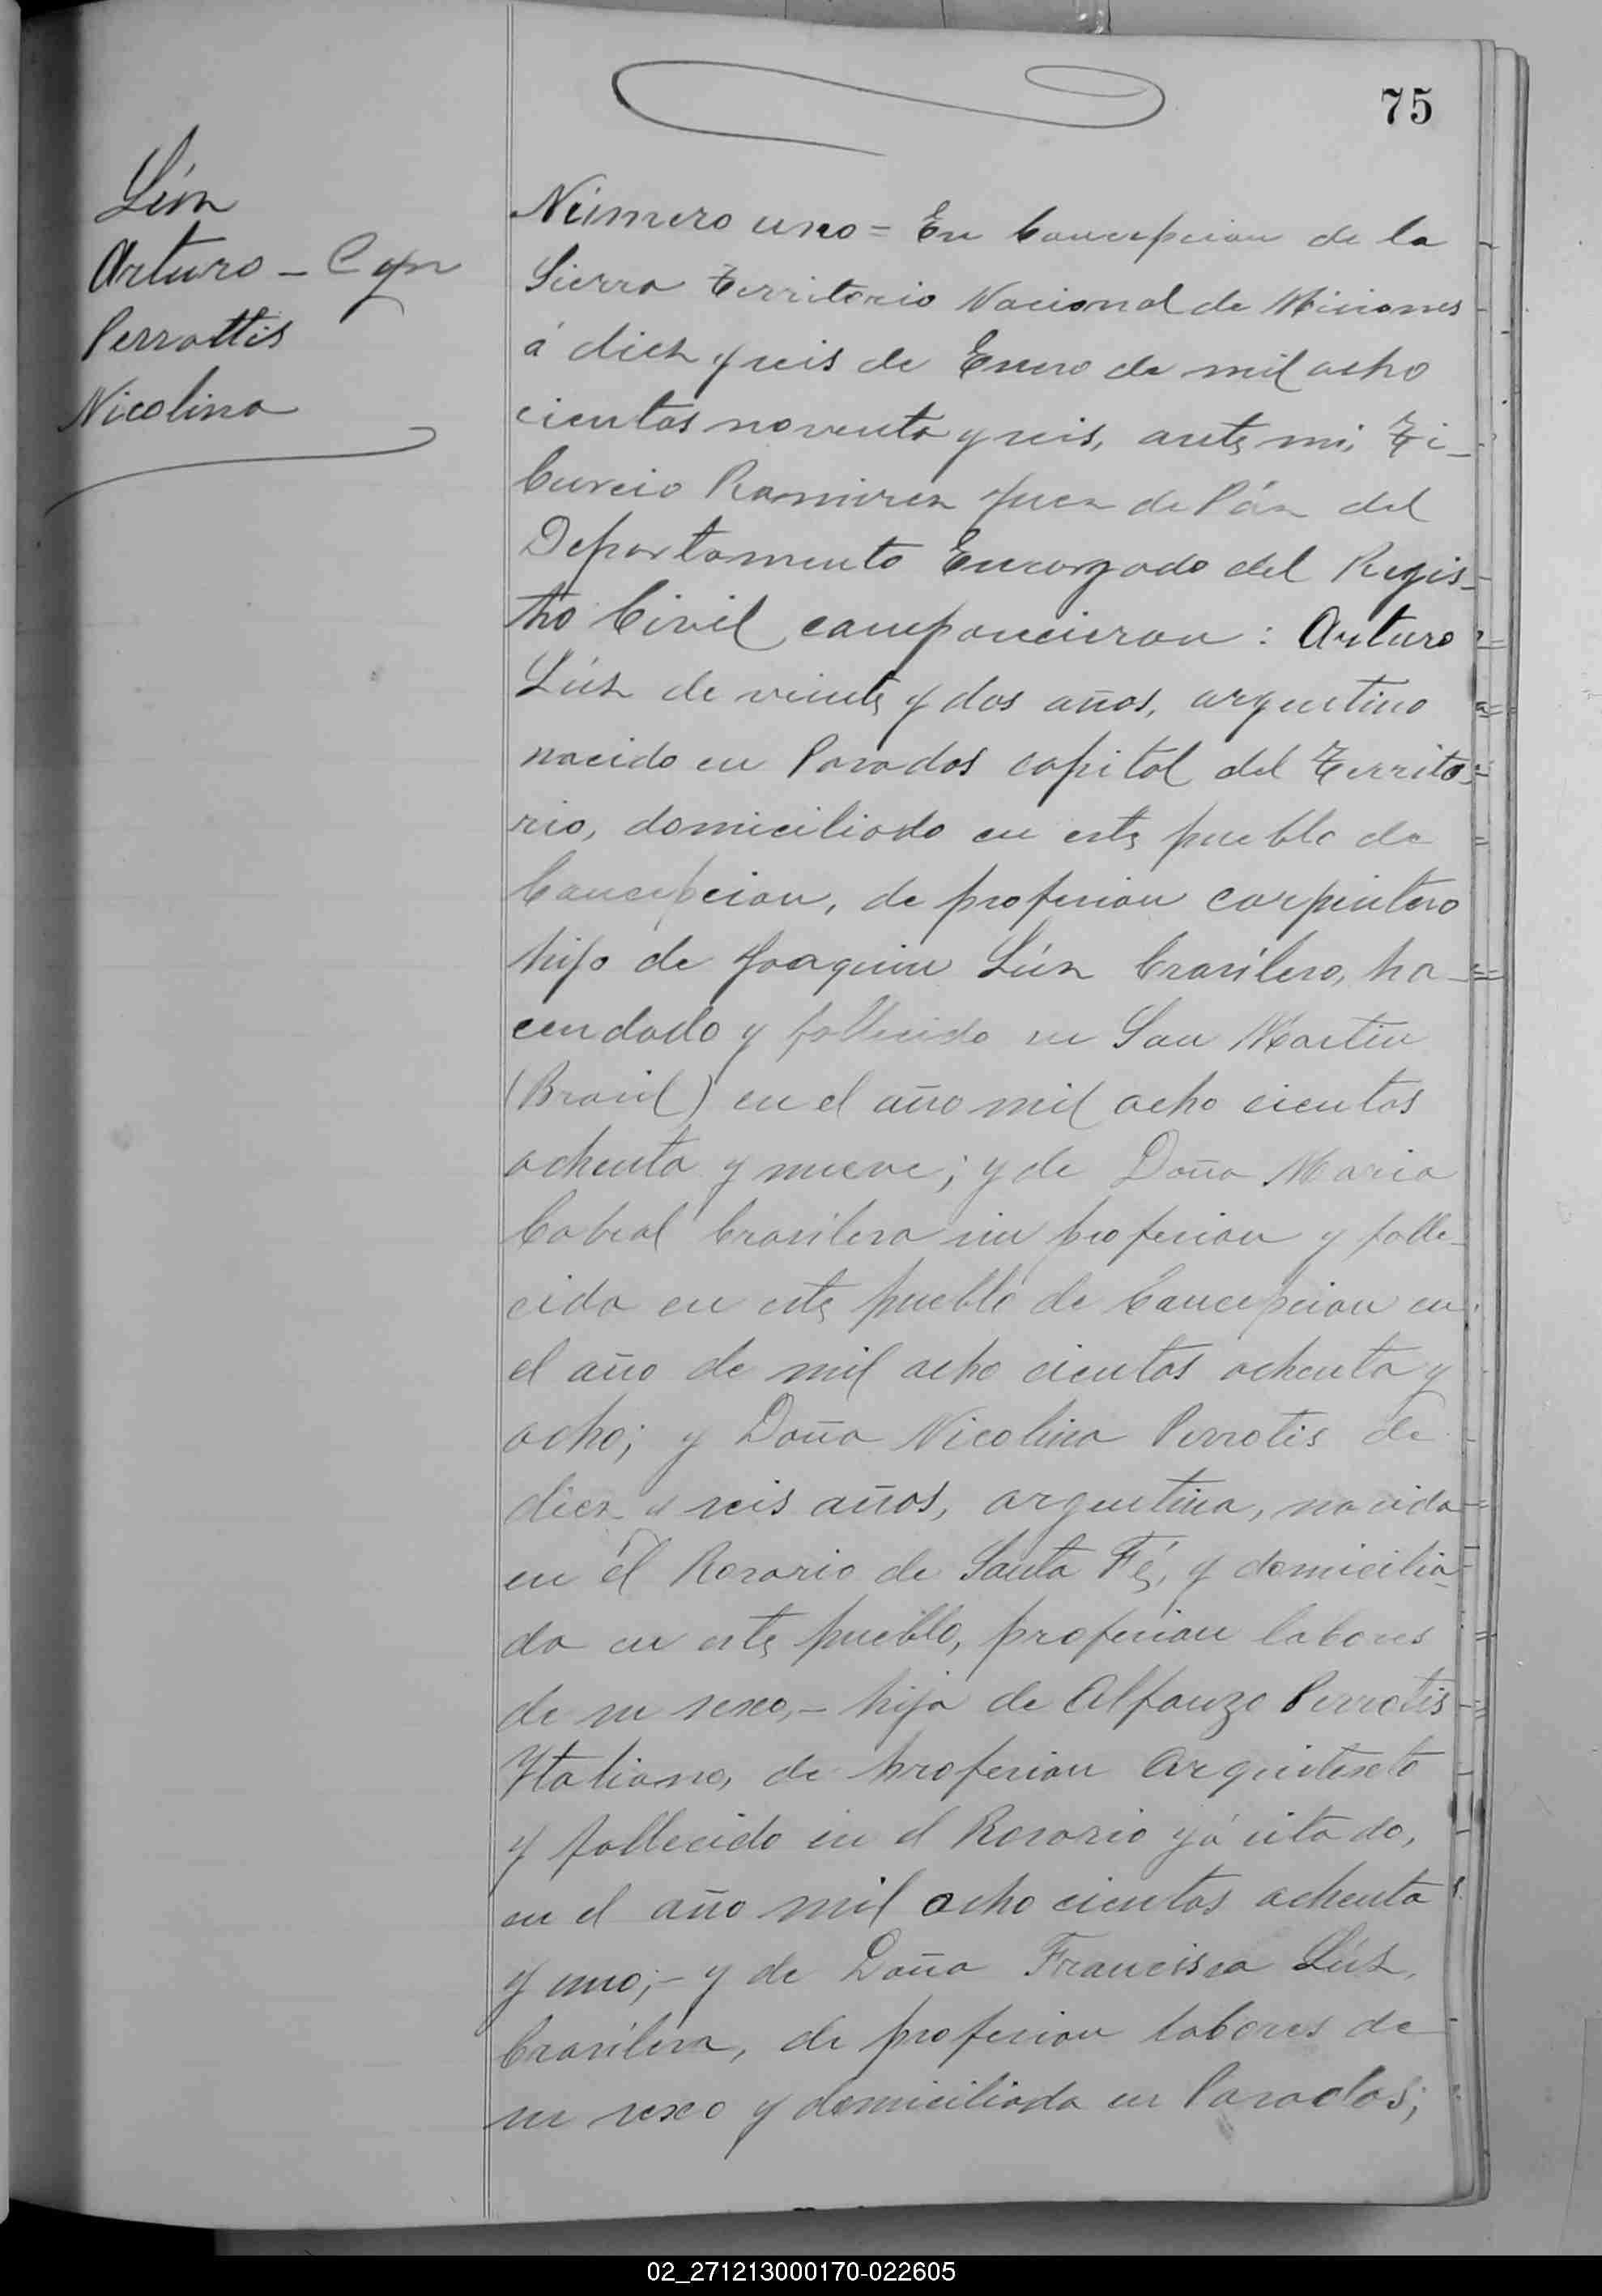 75
Lús
Arturo - Con
Perrottis
Nicolina
Número uno = En Concepcion de la
Sierra Territorio Nacional de Misiones
á diez y seis de Enero de mil ocho
cientos noventa y seis, ante mi, Ti-
burcio Ramirez Juez de Páz del
Departamento Encargado del Regis-
tro Civil comparecieron : Arturo
Lús de veinte y dos años, argentino
nacido en Posadas capital del Territo-
rio, domiciliado en este pueblo de
Concepcion, de profesion carpintero
hijo de Joaquin Lús brasilero, ha-
cendado y fallecido en San Martin
(Brasil) en el año mil ocho cientos
ochenta y nueve; y de Doña Maria
Cabral brasilera sin profesion y falle-
cida en este pueblo de Concepcion en
el año de mil ocho cientos ochenta y
ocho; y Doña Nicolina Perrotis de
diez y seis años, argentina, nacida
en el Rosario de Santa Fé, y domicilia-
da en este pueblo, profesion labores
de su sexo,- hija de Alfonzo Perrotis
Ytaliano, de profesion Arquitexto
y fallecido en el Rosario yá citado,
en el año mil ocho cientos ochenta
y uno;- y de Doña Francisca Lús,
brasilera, de profesion labores de
su sexo y domiciliada en Posadas;
02_271213000170-022605